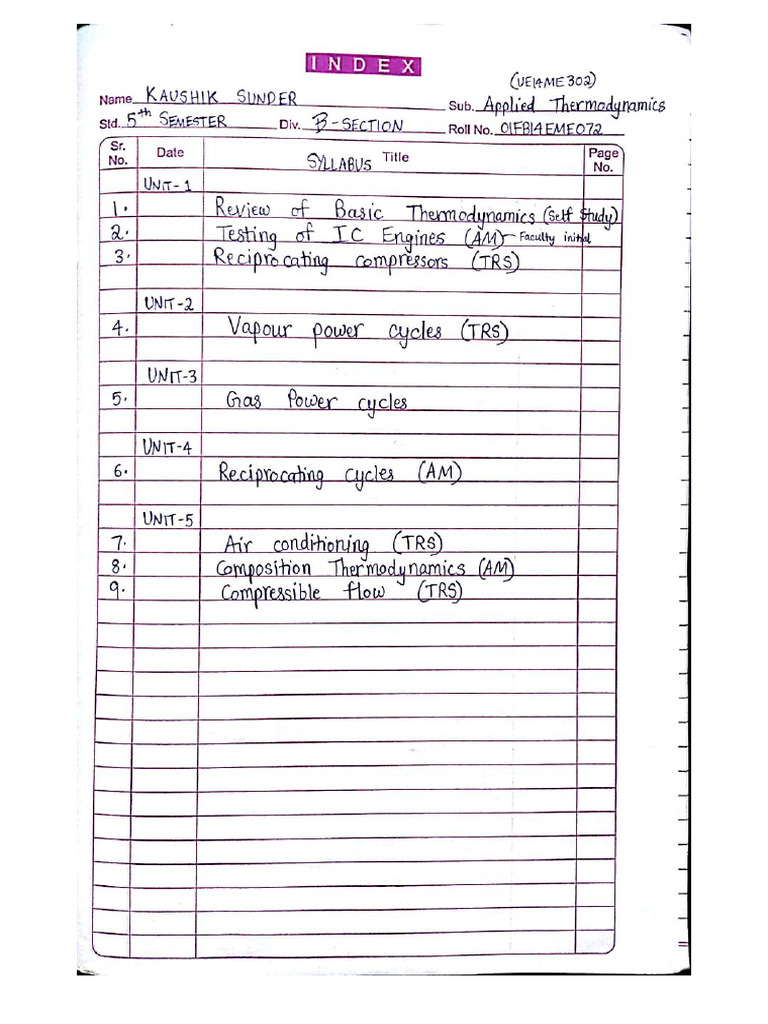 INDEX
(UE14ME302)
Name KAUSHIK SUNDER Sub. Applied Thermodynamics
Std. 5th SEMESTER Div. B-SECTION Roll No. 01FB14EME072
Sr. No. Date SYLLABUS Title Page No.
UNIT-1
1. Review of Basic Thermodynamics (Self Study)
2. Testing of IC Engines (AM) - Faculty initial
3. Reciprocating compressors (TRS)
UNIT-2
4. Vapour power cycles (TRS)
UNIT-3
5. Gas Power cycles
UNIT-4
6. Reciprocating cycles (AM)
UNIT-5
7. Air conditioning (TRS)
8. Composition Thermodynamics (AM)
9. Compressible flow (TRS)